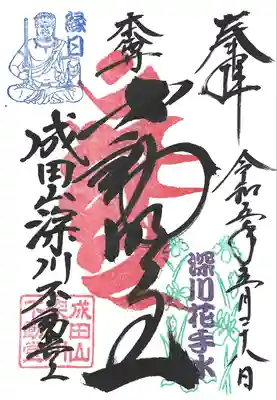 奉拝
令和五年五月二十八日
深川花手水
本尊
不動明王
縁日
成田山深川不動堂
成田山
不動堂